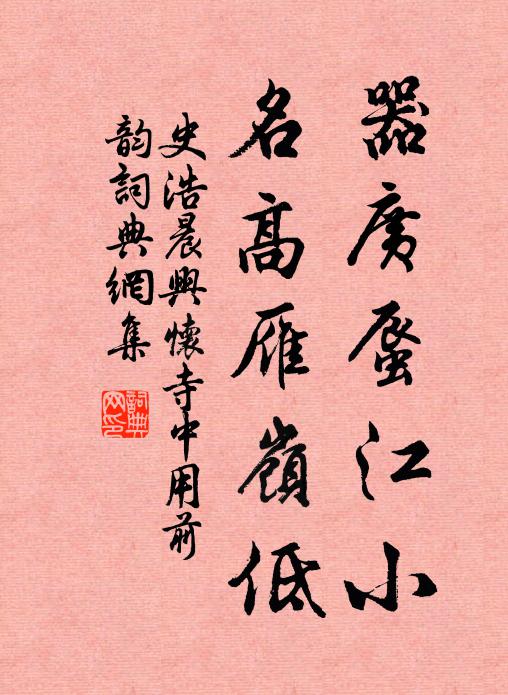 器廣蜃江小
名高雁嶺低
史浩晨興懷寺中用前
韵詞典網集
詞典
网印